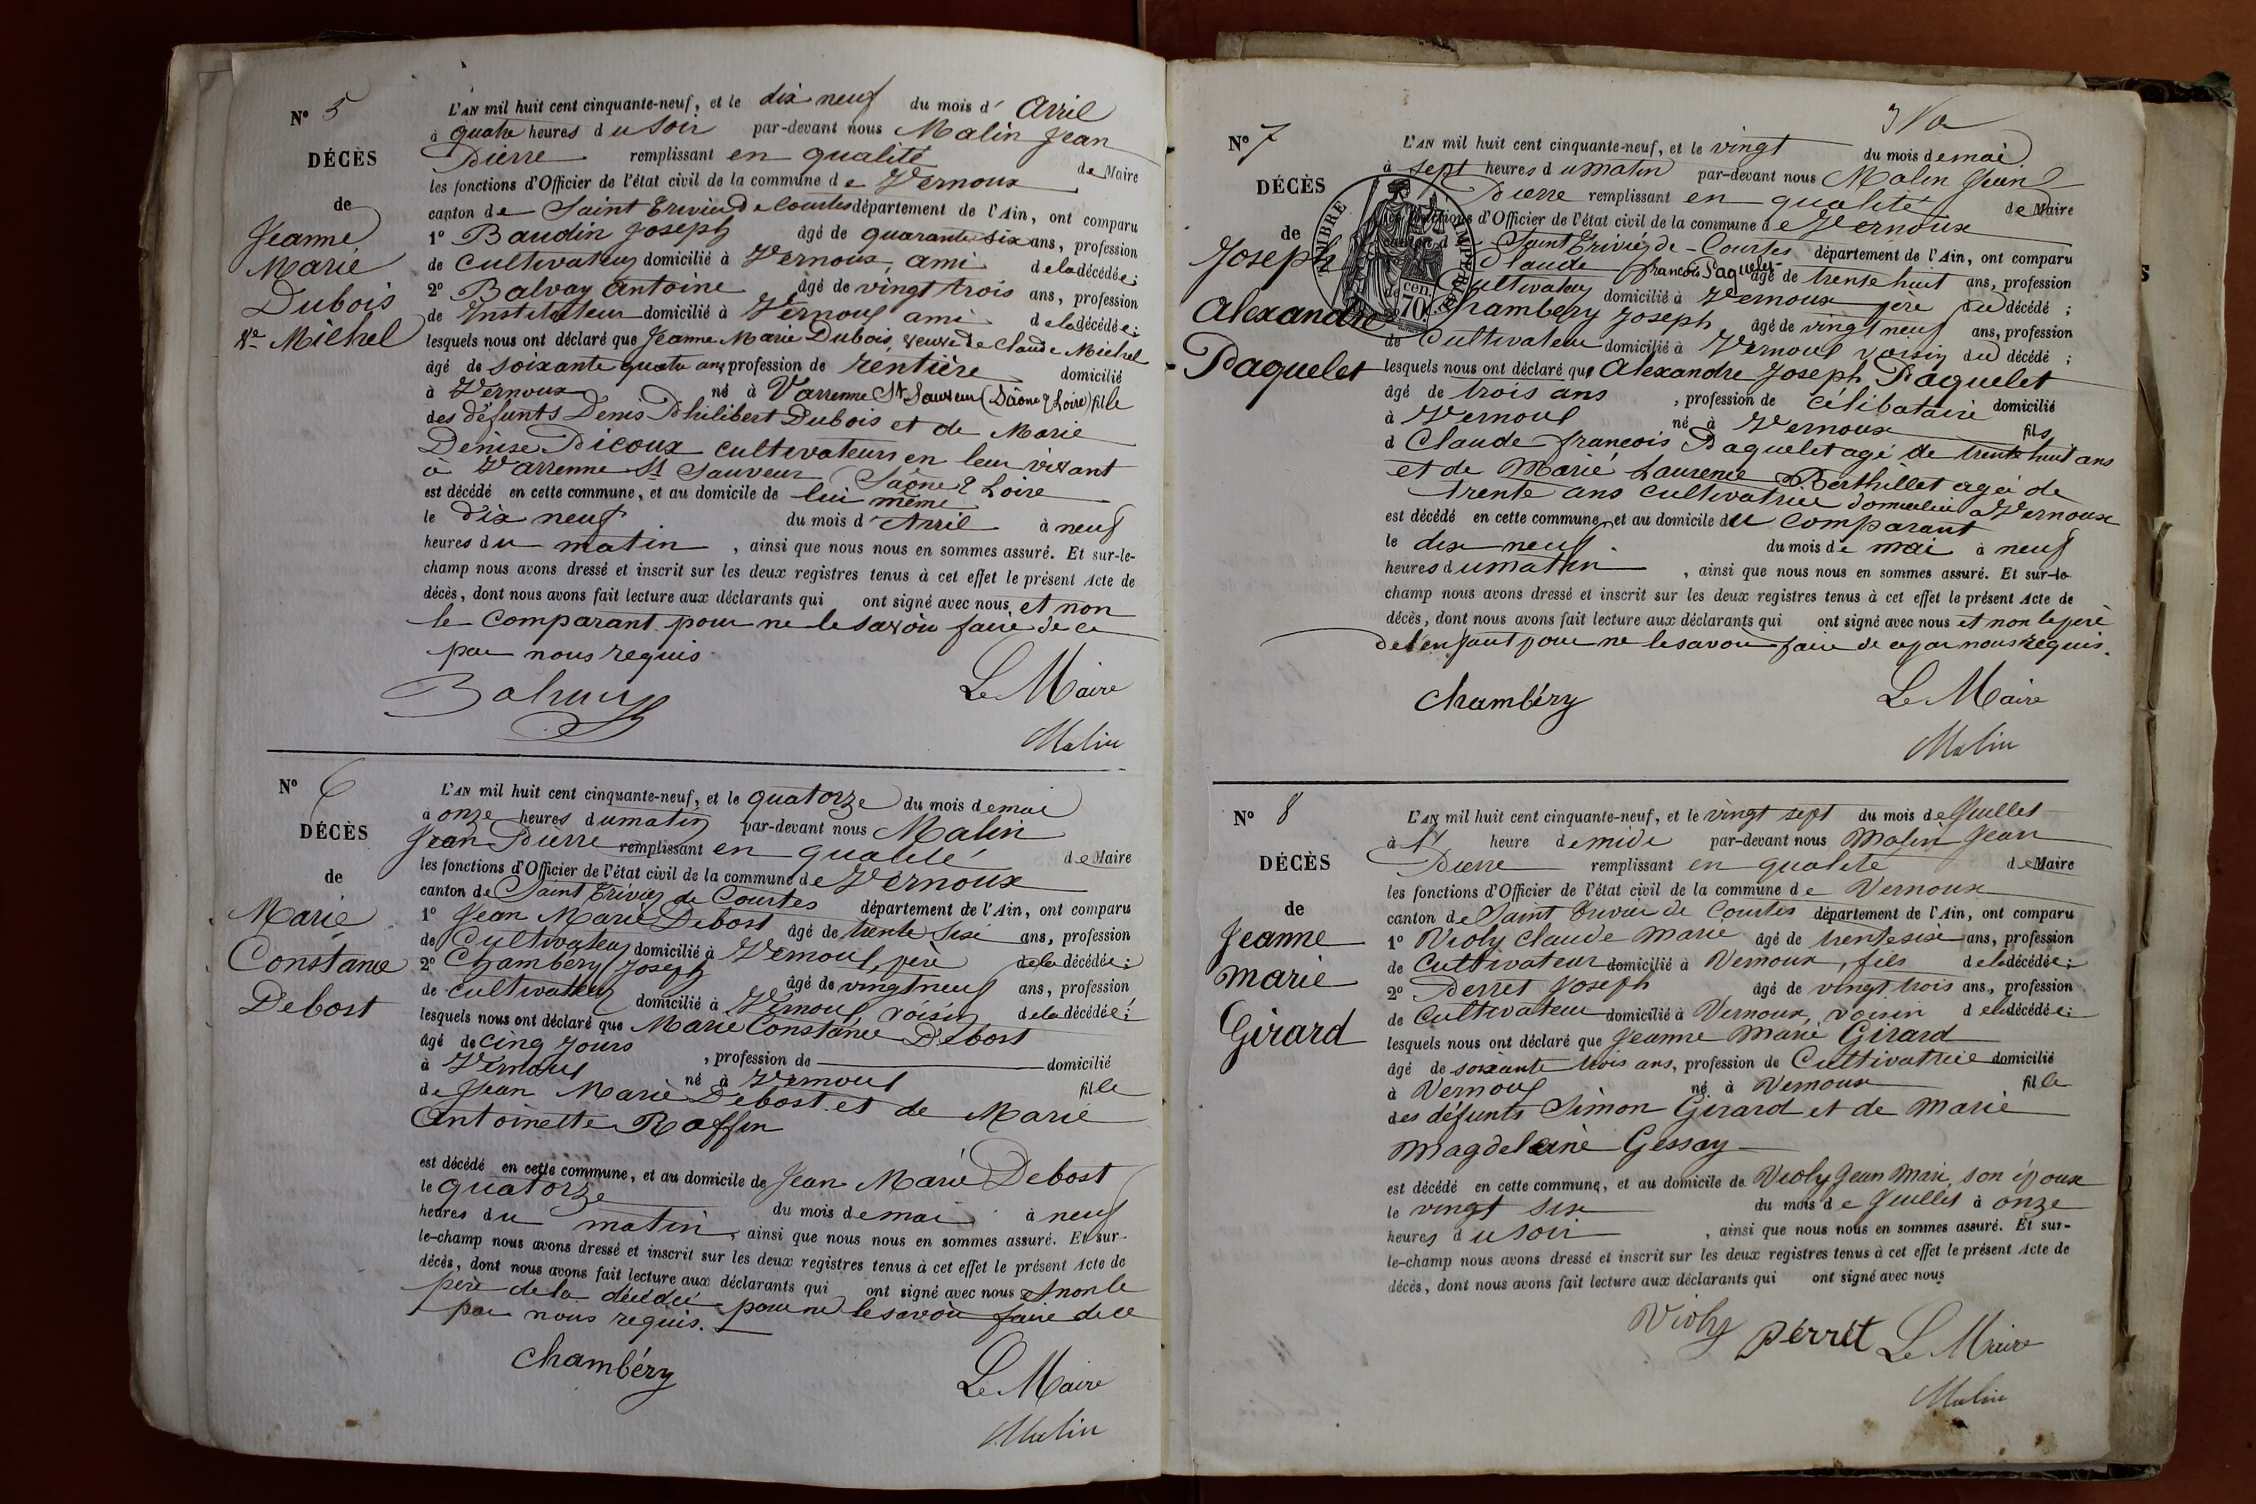 N° 5
DÉCÈS
de
Jeanne
Marie
Dubois
Ve Michel
L'AN mil huit cent cinquante-neuf, et le dix neuf du mois d' Avril
à quatre heures du soir par-devant nous Malin Jean
Pierre remplissant en qualité de Maire
les fonctions d'Officier de l'état civil de la commune de Vernoux
canton de Saint Trivier de Courtes département de l'Ain, ont comparu
1° Baudin Joseph âgé de quarante six ans, profession
de Cultivateur domicilié à Vernoux, ami de la décédée;
2° Balvay Antoine âgé de vingt trois ans, profession
de Instituteur domicilié à Vernoux ami de la décédée;
lesquels nous ont déclaré que Jeanne Marie Dubois, veuve de Claude Michel
âgé de soixante quatre ans profession de rentière domicilié
à Vernoux né à Varenne St Sauveur (Saône & Loire) fille
des défunts Denis Philibert Dubois et de Marie
Denise Picoux cultivateurs en leur vivant
à Varrenne St Sauveur Saône & Loire
est décédé en cette commune, et au domicile de lui même
le dix neuf du mois d'Avril à neuf
heures du matin, ainsi que nous nous en sommes assuré. Et sur-le-
champ nous avons dressé et inscrit sur les deux registres tenus à cet effet le présent Acte de
décès, dont nous avons fait lecture aux déclarants qui ont signé avec nous, et non
le comparant pour ne le savoir faire de ce
par nous requis
Balvay
Le Maire
Malin
N° 6
DÉCÈS
de
Marie
Constance
Debost
L'AN mil huit cent cinquante-neuf, et le quatorze du mois de mai
à onze heures du matin par-devant nous Malin
Jean Pierre remplissant en qualité de Maire
les fonctions d'Officier de l'état civil de la commune de Vernoux
canton de Saint Trivier de Courtes département de l'Ain, ont comparu
1° Jean Marie Debost âgé de trente six ans, profession
de Cultivateur domicilié à Vernoux, père de la décédée;
2° Chambéry Joseph âgé de vingt neuf ans, profession
de cultivateur domicilié à Vernoux, voisin de la décédée;
lesquels nous ont déclaré que Marie Constance Debost
âgé de cinq jours, profession de domicilié
à Vernoux né à Vernoux fille
de Jean Marie Debost et de Marie
Antoinette Raffin
est décédé en cette commune, et au domicile de Jean Marie Debost
le quatorze du mois de mai à neuf
heures du matin, ainsi que nous nous en sommes assuré. Et sur-
le-champ nous avons dressé et inscrit sur les deux registres tenus à cet effet le présent Acte de
décès, dont nous avons fait lecture aux déclarants qui ont signé avec nous et non le
père de la décédé pour ne le savoir faire de ce
par nous requis.
Chambéry
Le Maire
Malin
N° 7
DÉCÈS
de
Joseph
Alexandre
Paquelet
TIMBRE IMPÉRIAL
70 cen.
L'AN mil huit cent cinquante-neuf, et le vingt du mois de mai
à sept heures du matin par-devant nous Malin Jean
Pierre remplissant en qualité de Maire
les fonctions d'Officier de l'état civil de la commune de Vernoux
canton de Saint Trivier de Courtes département de l'Ain, ont comparu
Claude françois Paquelet âgé de trente huit ans, profession
de Cultivateur domicilié à Vernoux père du décédé;
Chambéry Joseph, âgé de vingt neuf ans, profession
de Cultivateur domicilié à Vernoux voisin du décédé;
lesquels nous ont déclaré que Alexandre Joseph Paquelet
âgé de trois ans, profession de célibataire domicilié
à Vernoux né à Vernoux fils
d Claude françois Paquelet agé de trente huit ans
et de Marie Laurence Berthillet agée de
trente ans cultivatrice domicilié à Vernoux
est décédé en cette commune, et au domicile du comparant
le dix neuf du mois de mai à neuf
heures du matin, ainsi que nous nous en sommes assuré. Et sur-le-
champ nous avons dressé et inscrit sur les deux registres tenus à cet effet le présent Acte de
décès, dont nous avons fait lecture aux déclarants qui ont signé avec nous et non le père
de l'enfant pour ne le savoir faire de ce par nous requis.
Chambéry
Le Maire
Malin
N° 8
DÉCÈS
de
Jeanne
Marie
Girard
L'AN mil huit cent cinquante-neuf, et le vingt sept du mois de Juillet
à heure de midi par-devant nous Malin Jean
Pierre remplissant en qualité de Maire
les fonctions d'Officier de l'état civil de la commune de Vernoux
canton de Saint Trivier de Courtes département de l'Ain, ont comparu
1° Violy Claude Marie âgé de trente six ans, profession
de Cultivateur domicilié à Vernoux, fils de la décédée;
2° Perret Joseph âgé de vingt trois ans, profession
de Cultivateur domicilié à Vernoux, voisin de la décédée;
lesquels nous ont déclaré que Jeanne Marie Girard
âgé de soixante trois ans, profession de Cultivatrice domicilié
à Vernoux né à Vernoux fille
des défunts Simon Girard et de Marie
Magdeleine Gessay
est décédé en cette commune, et au domicile de Violy Jean Marie, son époux
le vingt six du mois de Juillet à onze
heures du soir, ainsi que nous nous en sommes assuré. Et sur-
le-champ nous avons dressé et inscrit sur les deux registres tenus à cet effet le présent Acte de
décès, dont nous avons fait lecture aux déclarants qui ont signé avec nous
Violy Perret Le Maire
Malin